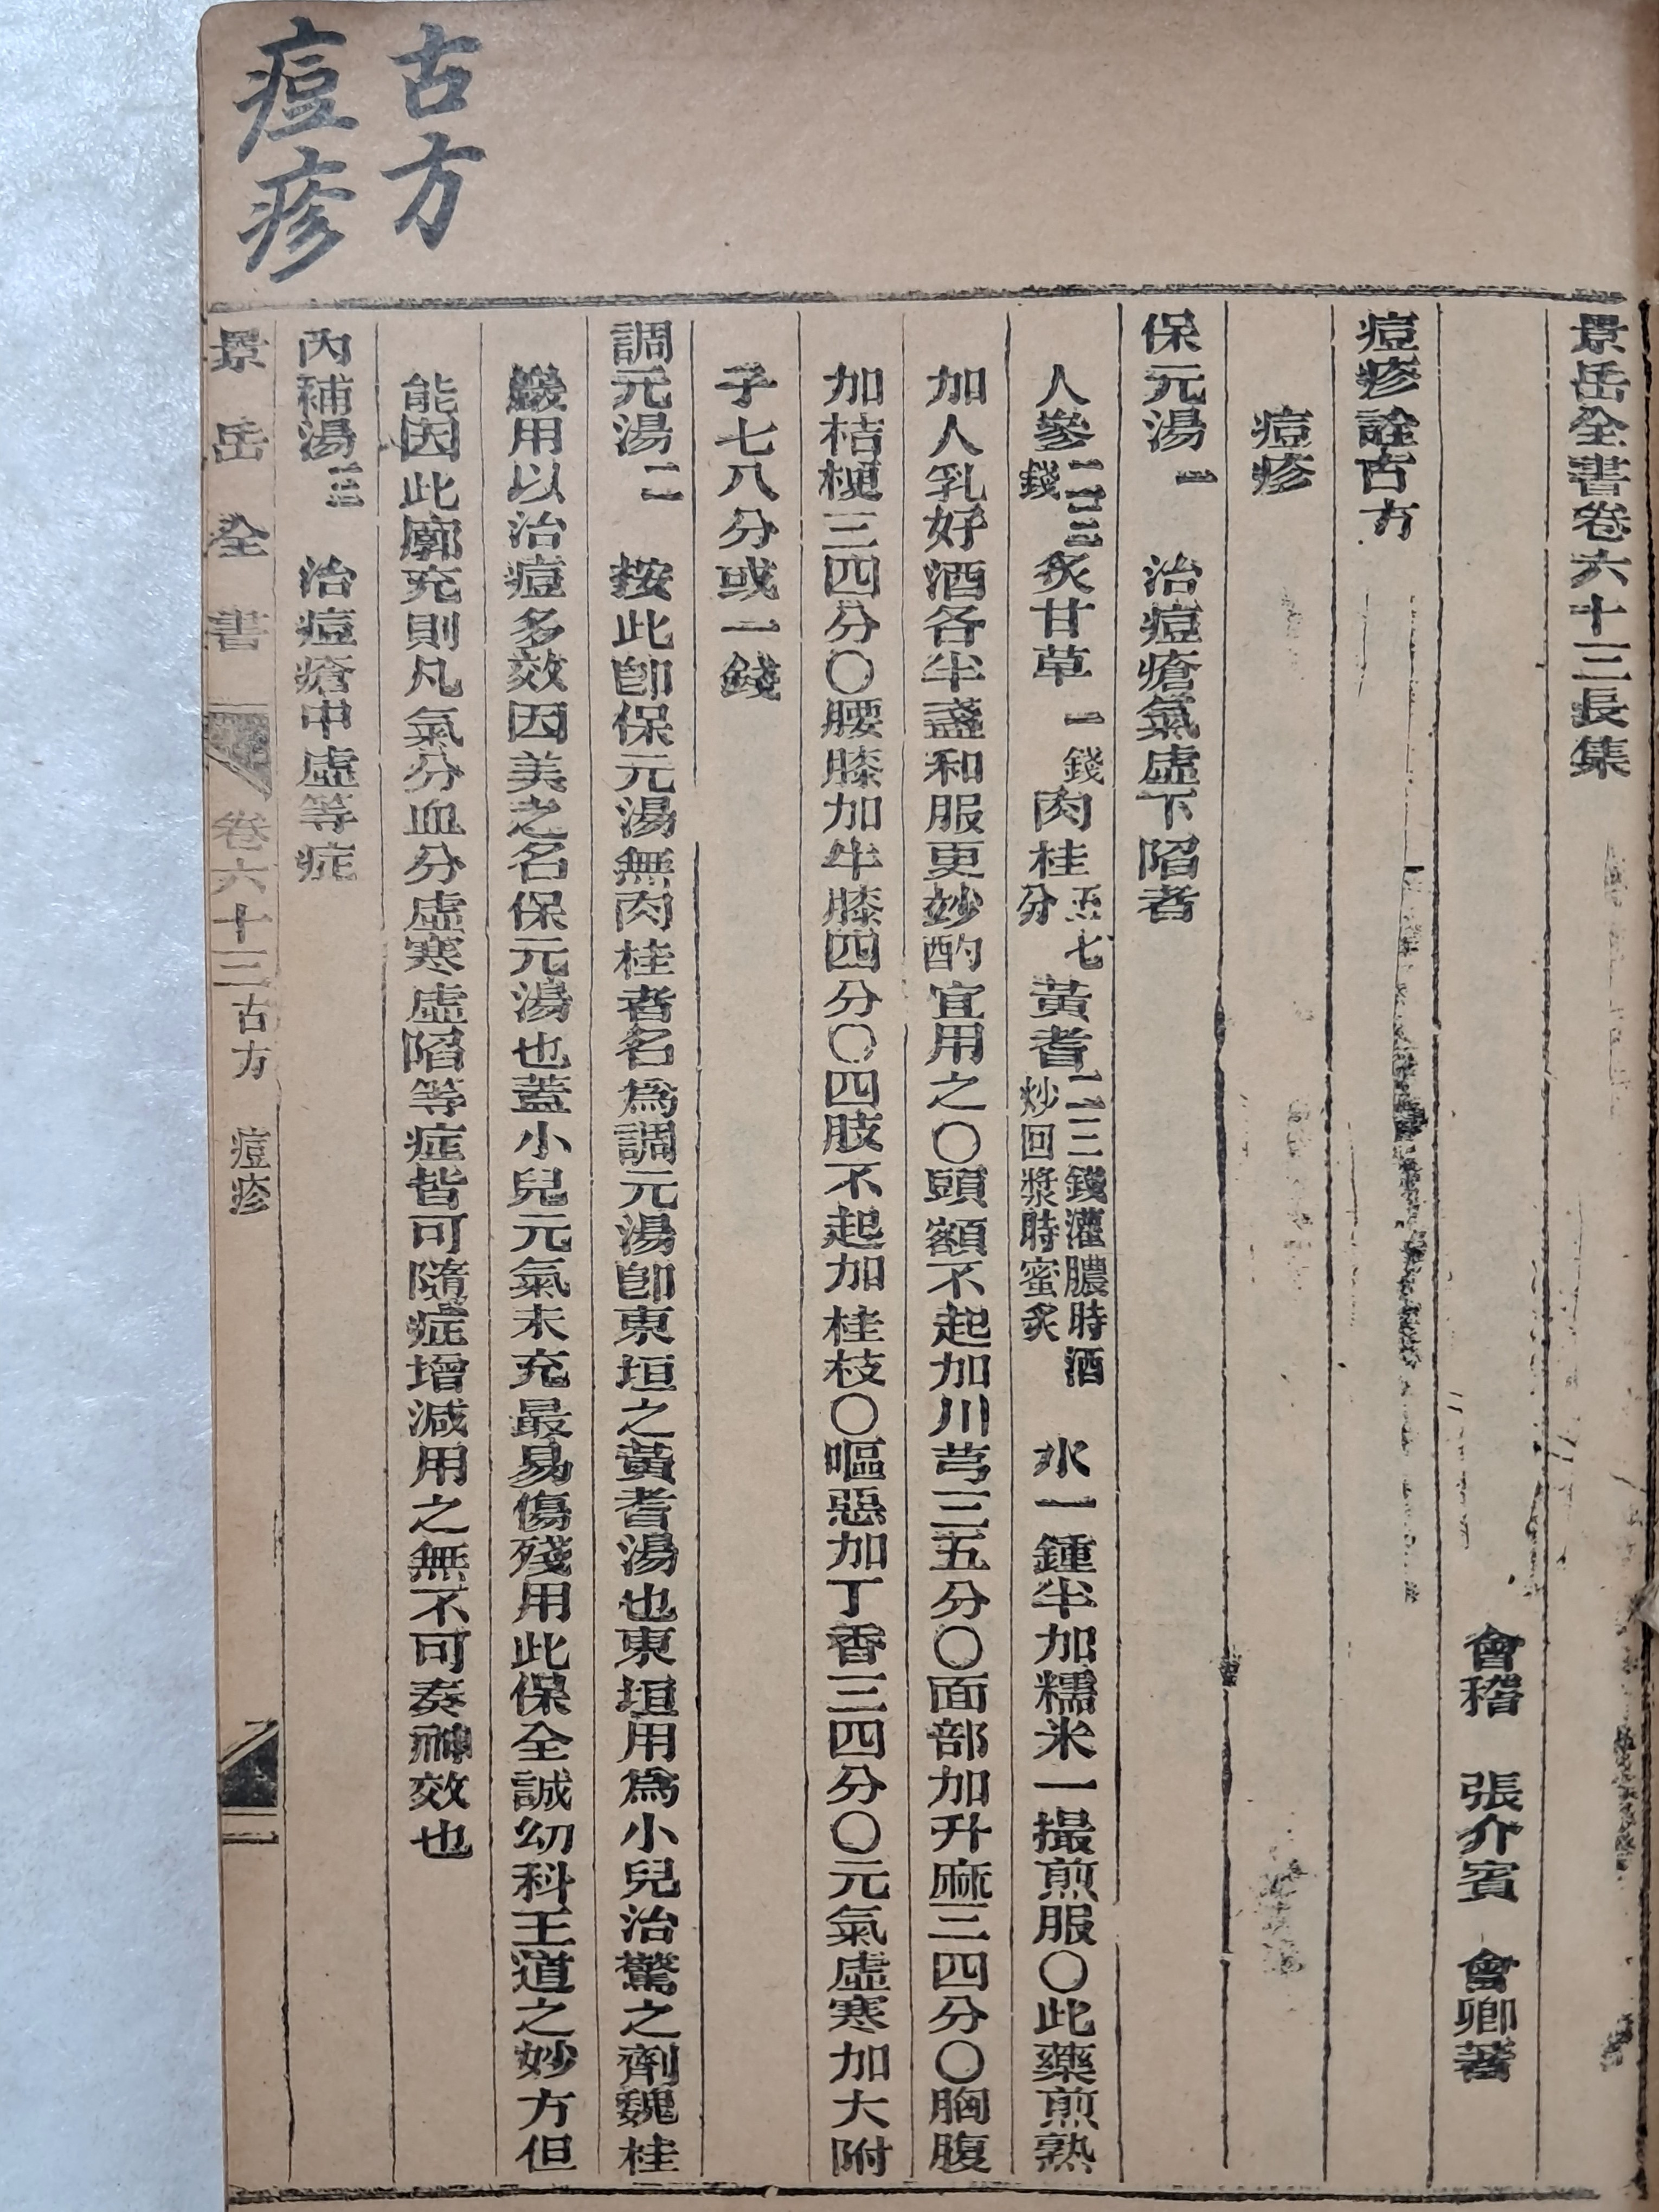 古方
痘疹
景岳全書卷六十三長集
會稽 張介賓 會卿著
痘疹詮古方
痘疹
保元湯 一 治痘瘡氣虛下陷者
人參 二三錢 炙甘草 一錢 肉桂 五七分 黃耆 二三錢灌膿時酒炒回漿時蜜炙 水一鍾半加糯米一撮煎服○此藥煎熟
加人乳好酒各半盞和服更妙酌宜用之○頭額不起加川芎三五分○面部加升麻三四分○胸腹
加桔梗三四分○腰膝加牛膝四分○四肢不起加桂枝○嘔惡加丁香三四分○元氣虛寒加大附
子七八分或一錢
調元湯 二 按此卽保元湯無肉桂者名爲調元湯卽東垣之黃耆湯也東垣用爲小兒治驚之劑魏桂
巖用以治痘多效因美之名保元湯也蓋小兒元氣未充最易傷殘用此保全誠幼科王道之妙方但
能因此廓充則凡氣分血分虛寒虛陷等症皆可隨症增減用之無不可奏神效也
內補湯 三 治痘瘡中虛等症
景岳全書 卷六十三 古方 痘疹 一